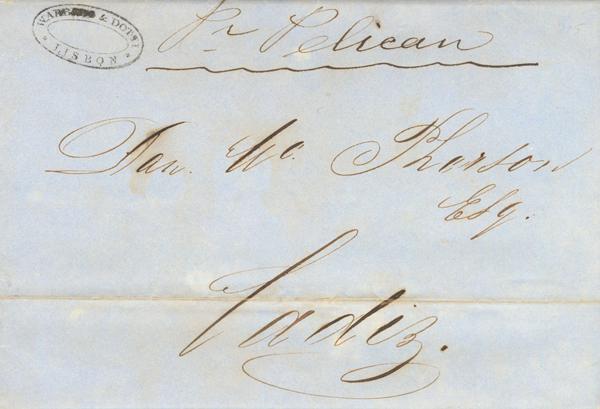 & DOTSI
LISBON
Pr Pelican
Dan. Mc. Pherson
Esq.
Cadiz.